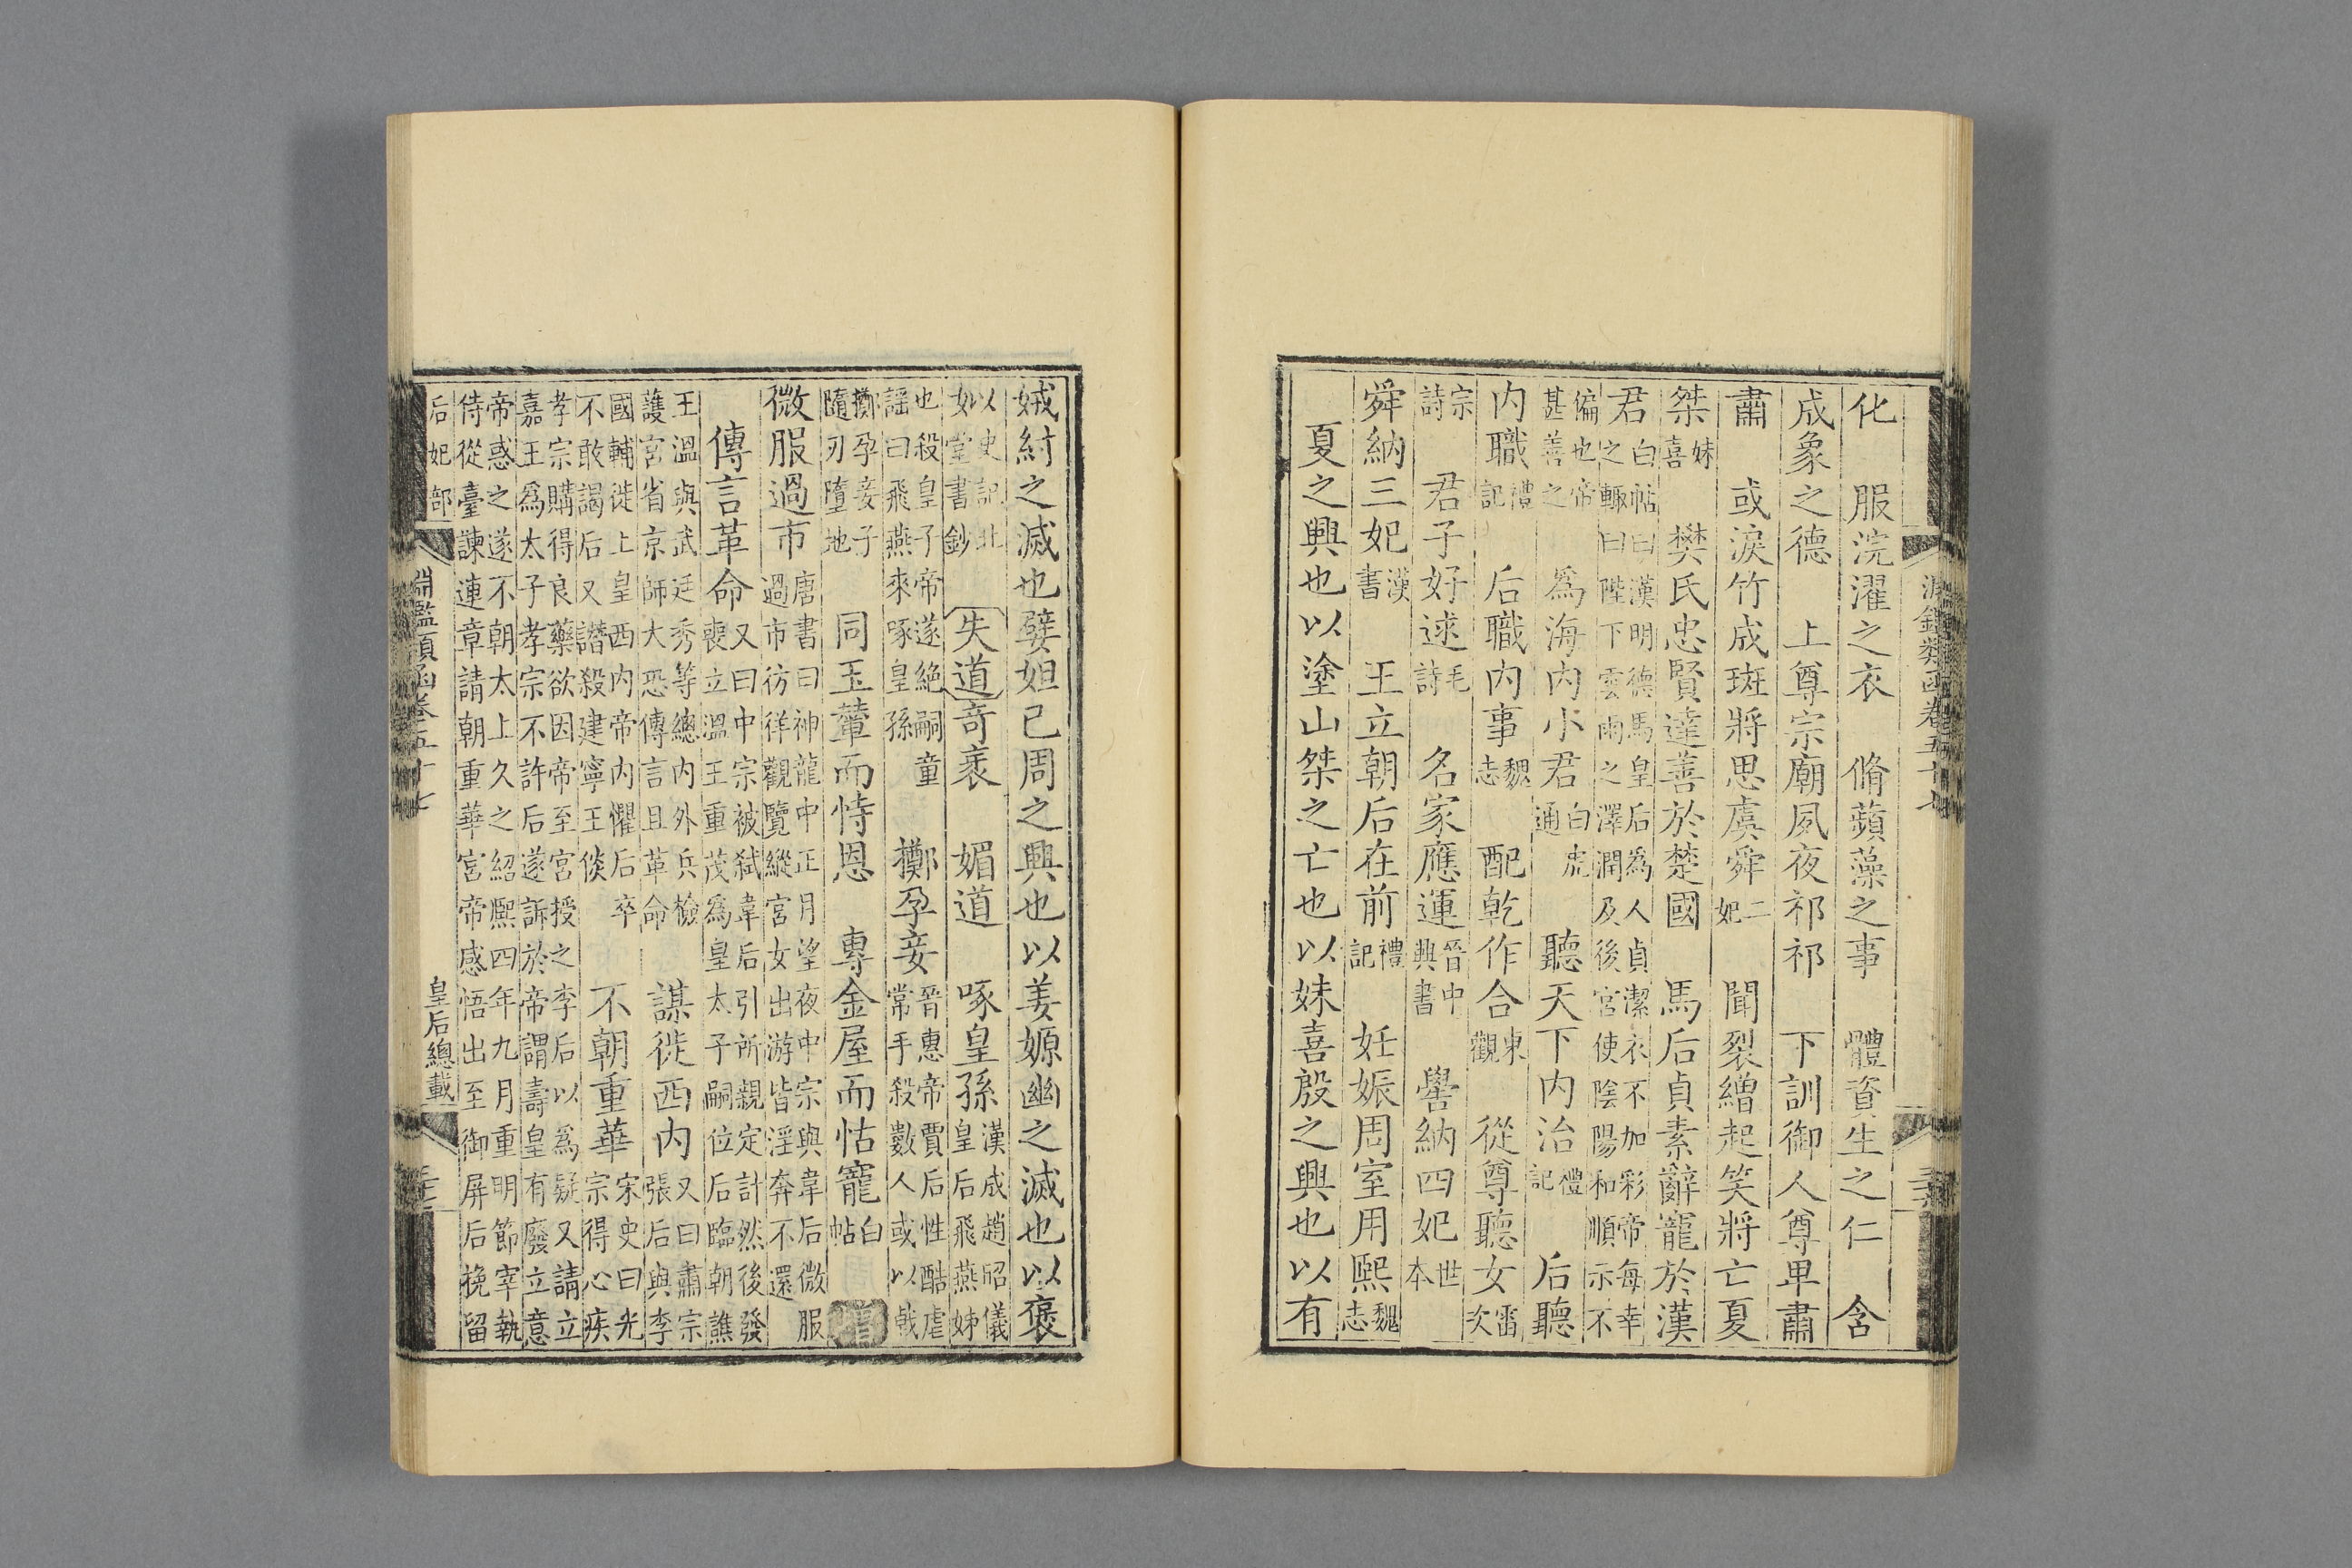 化　服浣濯之衣　脩蘋藻之事　體資生之仁　含
成象之德　上尊宗廟夙夜祁祁　下訓御人尊卑肅
肅　或淚竹成斑將思虞舜二妃　聞裂繒起笑將亡夏
桀妹喜　樊氏忠賢達善於楚國　馬后貞素辭寵於漢
君白帖曰漢明德馬皇后為人貞潔衣不加彩帝每幸
之輙曰陛下雲雨之澤潤及後宮使陰陽和順示不
偏也帝
甚善之　為海內小君白虎通　聽天下內治禮記　后聽
內職禮記　后職內事魏志　配乾作合東觀　從尊聽女畨次
宗詩　君子好逑毛詩　名家應運晉中興書　嚳納四妃世本
舜納三妃漢書　王立朝后在前禮記　妊娠周室用熙魏志
夏之興也以塗山桀之亡也以妹喜殷之興也以有
娀紂之滅也嬖妲己周之興也以姜嫄幽之滅也以褒
以史記北
姒堂書鈔　失道奇袤　媚道　啄皇孫漢成趙昭儀
皇后飛燕姊
也殺皇子帝遂絕嗣童
謡曰飛燕來啄皇孫　擲孕妾晉惠帝賈后性酷虐
常手殺數人或以戟
擲孕妾子
隨刃墮地　同玉輦而恃恩　專金屋而怙寵白帖
微服過市唐書曰神龍中正月望夜中宗與韋后微服
過市彷徉觀覽縱宮女出游皆淫奔不還
傳言革命又曰中宗被弑韋后引所親定計然後發
喪立溫王重茂為皇太子嗣位后臨朝譙
王溫與武廷秀等總內外兵檢
護宮省京師大恐傳言且革命　謀徙西內又曰肅宗
張后與李
國輔徙上皇西內帝內懼后卒
不敢謁后又譖殺建寧王倓　不朝重華宋史曰光
宗得心疾
孝宗購得良藥欲因帝至宮授之李后以為疑又請立
嘉王為太子孝宗不許后遂訴於帝謂壽皇有廢立意
帝惑之遂不朝太上久之紹熙四年九月重明節宰執
侍從臺諫連章請朝重華宮帝感悟出至御屏后挽留
后妃部　淵鑑類函卷五十七　皇后總載